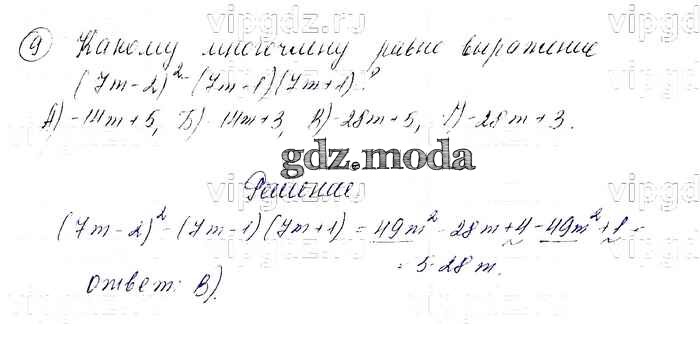 vipgdz.ru vipgdz.ru vipgdz.ru
9 Какому многочлену равно выражение
(7m-2)² - (7m-1)(7m+1)?
А) -14m+5, Б) -14m+3, В) -28m+5, Г) -28m+3.
gdz.moda
Решение
(7m-2)² - (7m-1)(7m+1) = 49m² - 28m + 4 - 49m² + 1 =
= 5-28m.
ответ: В).